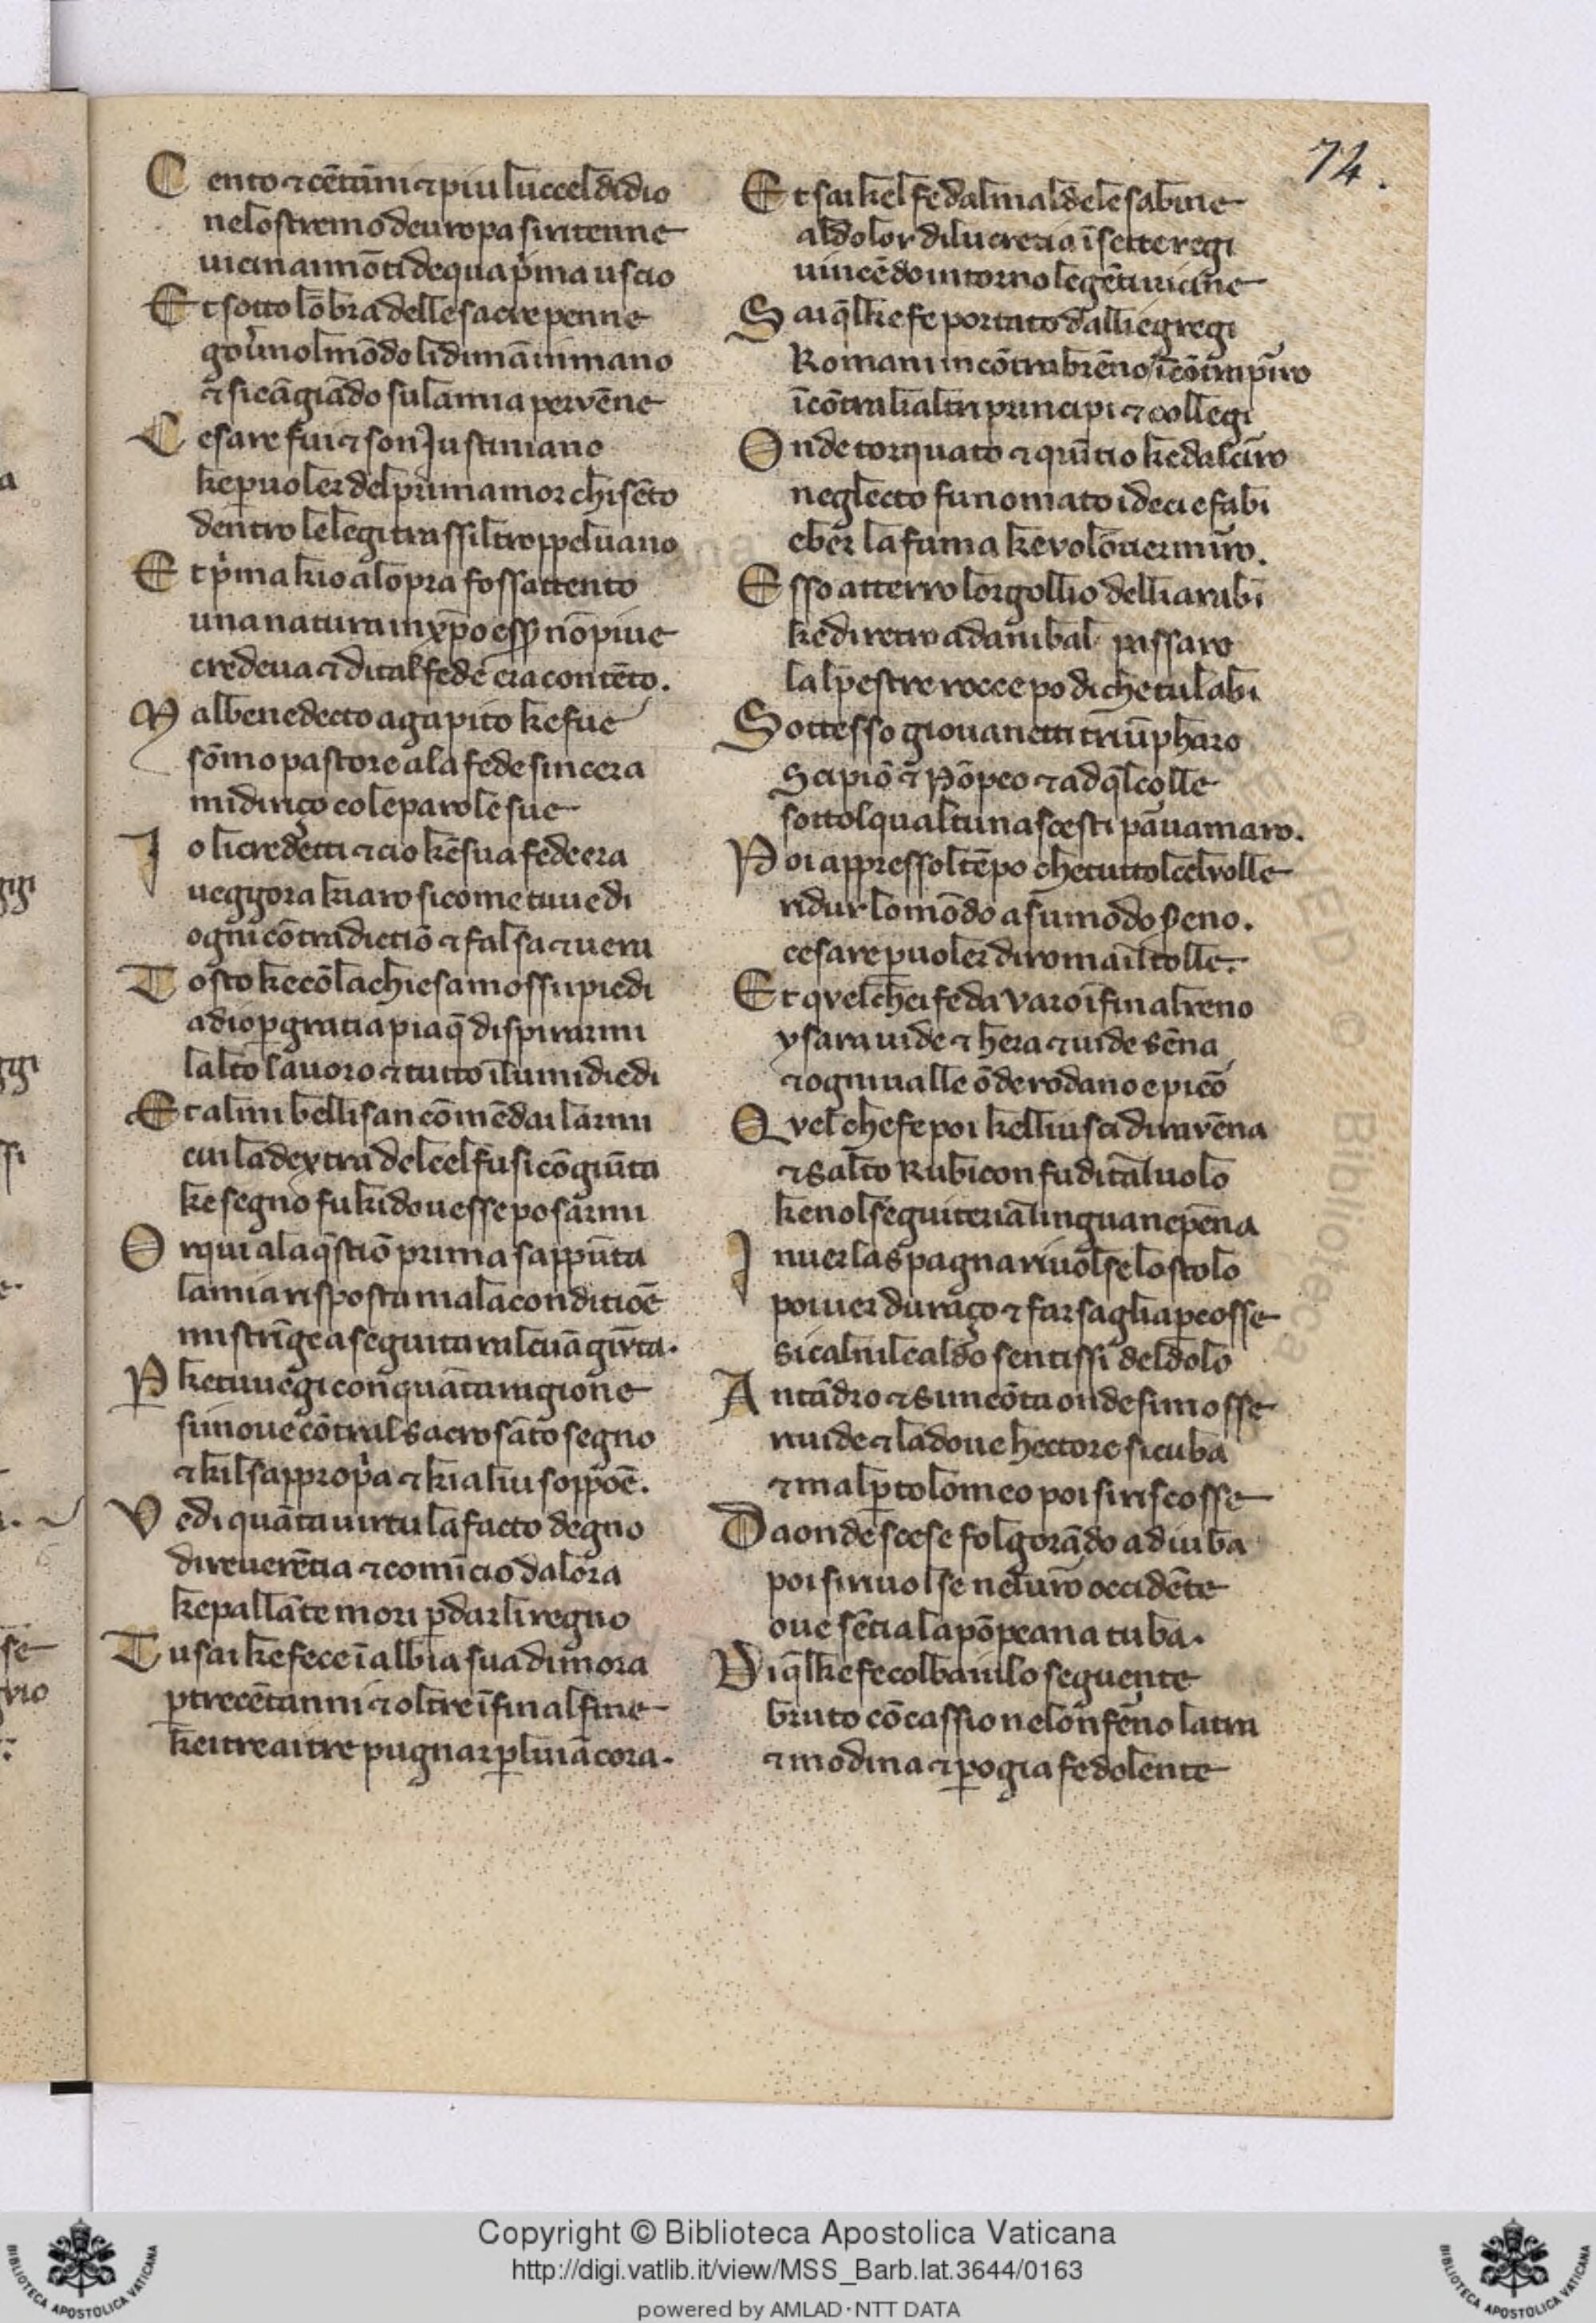 74.
Cento ⁊ cētāni ⁊ piu luccel didio
nelo stremo deuropa siritenne
uicinaimōti dequa pima uscio
Et sotto lōbra delle sacre penne
gou̓nolmōdo lidimāinmano
⁊ sicāgiādo sulamia pervēne
Cesare fui ⁊ son Justiniano
ke puoler del primamor chisēto
dentro lelegi trassiltroppeluano
Et pima kio alopra fossattento
una natura in xp̄o ess̄ nō piue
credeua ⁊ dital fede era contēto.
Malbenedecto agapito ke fue
sōmo pastore ala fede sincera
midiriço cole parole sue
Io licredetti ⁊ cio kēsua fede era
ueggora kiaro sicome tuuedi
ogni cōtradictiō ⁊ falsa ⁊ uera
Tosto ke cōla chiesa mossi ipiedi
adio p gratia piaq̄ dispirarmi
lalto lauoro ⁊ tutto īlui mi diedi
Et almi bellisan cōmēdai larmi
cui la dextra delcel fu si cōgiūta
ke segno fu kidouesse posarmi
Or qui ala q̄stiō prima sappūta
lamia risposta mala conditiōe
mi strīge a seguitar alcuā giūta.
Pke tu uegi con quāta ragione
simoue cōtral sacrosāto segno
⁊ kilsappropa ⁊ ki alui soppōe.
Vedi quāta uirtu lafacto degno
direuerētia ⁊ comīcio dalora
ke pallāte mori p darli regno
Tu sai ke fece ī albia sua dimora
p trecētanni ⁊ oltre īfinalfine
keitreaitre pugnar p lui ācora.
Et sai kel fe dalmal dele sabine
aldolor dilucretia ī sette regi
uincēdo intorno legēti uicine
Sai q̄lke fe portato dalli egregi
Romani incōtrabrēno īcōtrapirro
īcōtra lialtri principi ⁊ collegi
Onde torquato ⁊ quītio ke dal cirro
neglecto fu nomato i deci e fabi
eber la fama ke volōtier mirro.
Esso atterro lorgollio delli arabi
ke diretro ad anibal passaro
lalpestre rocce po di che tu labi
Sottesso giouanetti triūpharo
Scipiō ⁊ Pōpeo ⁊ ad q̄l colle
sottolqual tu nascesti pāuamaro.
Poi appressoltēpo che tuttolcel volle
ridur lo mōdo a su modo sereno.
cesare p uoler di roma il tolle.
Et quel chei fe da varo īfinalreno
ysara uide ⁊ hera ⁊ uide sēna
⁊ ogni ualle ōde rodano e piēo
Quel che fe poi kelli usci di rauēna
⁊ salto Rubicon fu di tal uolo
ke nol seguiteria lingua ne pēna
Inuer la spagna riuolse lo stolo
poi uer duraço ⁊ farsaglia pcosse
sicalnil caldo sentissi del dolo
Antādro ⁊ simeōta onde si mosse
riuide ⁊ la doue hectore si cuba
⁊ mal p tolomeo poi siriscosse
Da onde scese folgorādo ad iuba
poi siriuolse nel uro occidēte
oue sētia la pōpeana tuba.
Di q̄l ke fe col baiulo seguente
bruto cō cassio nelonferno latra
⁊ modina ⁊ perogia fe dolente
Copyright © Biblioteca Apostolica Vaticana
http://digi.vatlib.it/view/MSS_Barb.lat.3644/0163
powered by AMLAD·NTT DATA